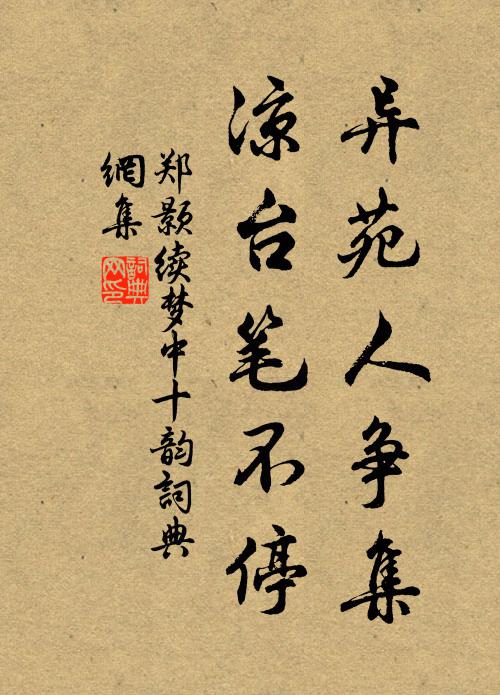 异苑人争集
凉台笔不停
郑颢续梦中十韵詞典
網集
詞典
网印